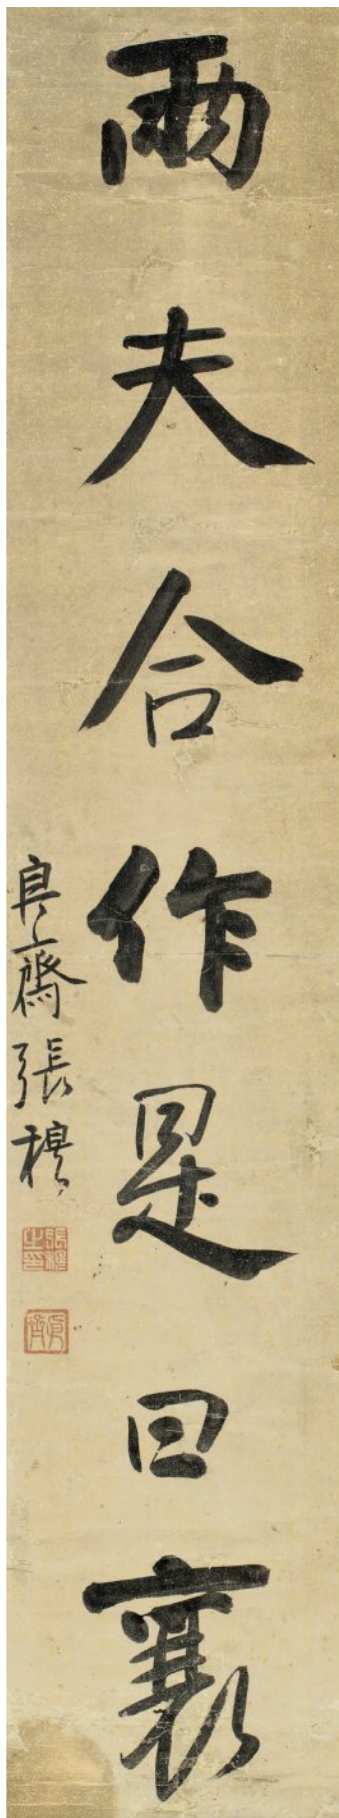 兩夫合作是曰襄
㐆齋張穆
張穆之印
㐆齋